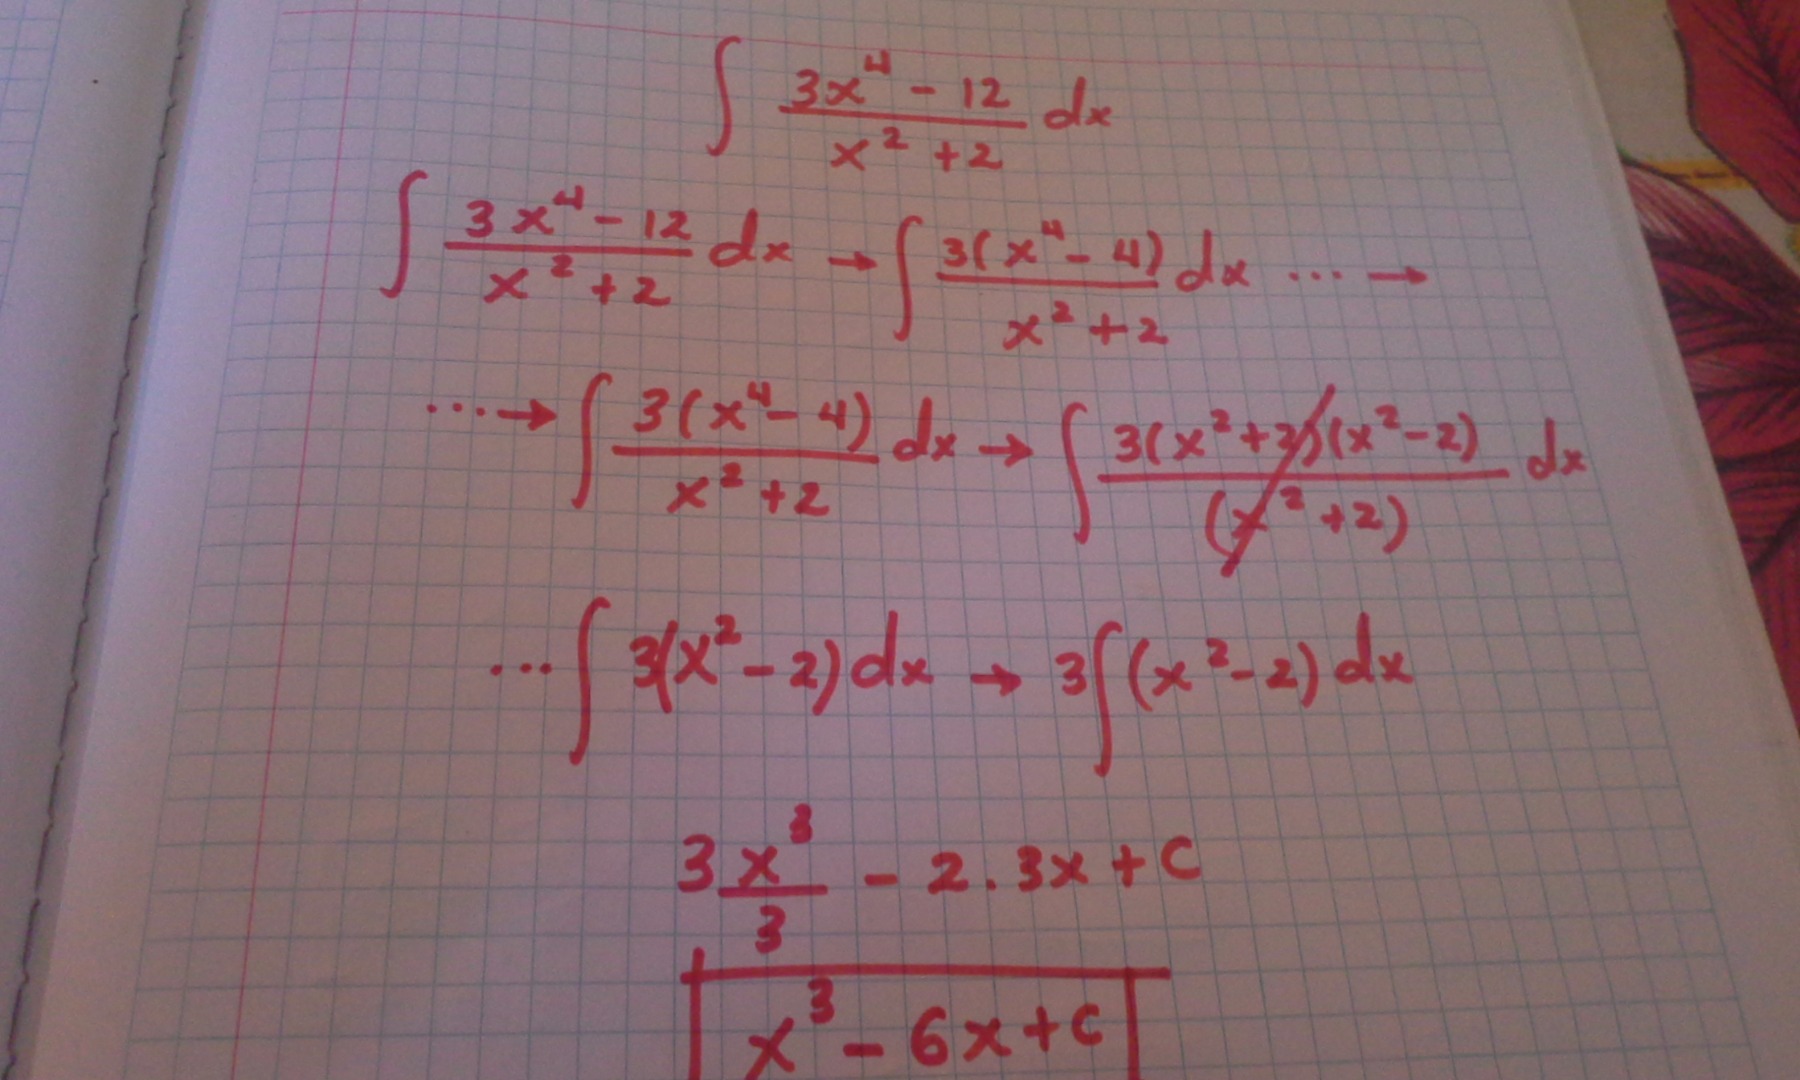 ∫ (3x⁴ - 12)/(x² + 2) dx
∫ (3x⁴ - 12)/(x² + 2) dx → ∫ 3(x⁴ - 4)/(x² + 2) dx ... →
... → ∫ 3(x⁴ - 4)/(x² + 2) dx → ∫ 3(x² + 2)(x² - 2)/(x² + 2) dx
... ∫ 3(x² - 2) dx → 3∫ (x² - 2) dx
3 x³/3 - 2 . 3x + C
x³ - 6x + C